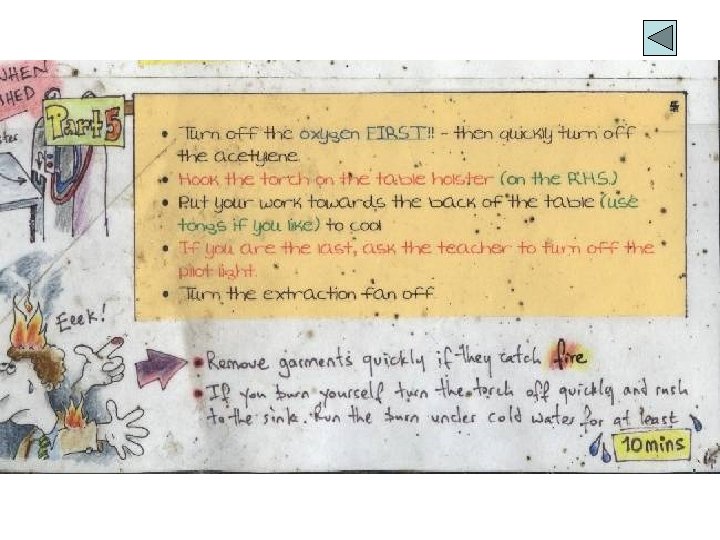 WHEN
SHED
Part 5
• Turn off the oxygen FIRST!! - then quickly turn off
the acetylene
• Hook the torch on the table holster (on the R.H.S.)
• Put your work towards the back of the table (use
tongs if you like) to cool
• If you are the last, ask the teacher to turn off the
pilot light.
• Turn the extraction fan off
Eeek!
• Remove garments quickly if they catch fire
• If you burn yourself turn the torch off quickly and rush
to the sink. Run the burn under cold water for at least
10 mins